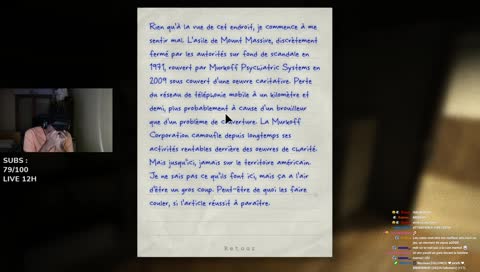 Rien qu'à la vue de cet endroit, je commence à me
sentir mal. L'asile de Mount Massive, discrètement
fermé par les autorités sur fond de scandale en
1971, rouvert par Murkoff Psychiatric Systems en
2009 sous couvert d'une oeuvre caritative. Perte
du réseau de téléphonie mobile à un kilomètre et
demi, plus probablement à cause d'un brouilleur
que d'un problème de couverture. La Murkoff
Corporation camoufle depuis longtemps ses
activités rentables derrière des oeuvres de charité.
Mais jusqu'ici, jamais sur le territoire américain.
Je ne sais pas ce qu'ils font ici, mais ça a l'air
d'être un gros coup. Peut-être de quoi les faire
couler, si l'article réussit à paraître.
Retour
SUBS :
79/100
LIVE 12H